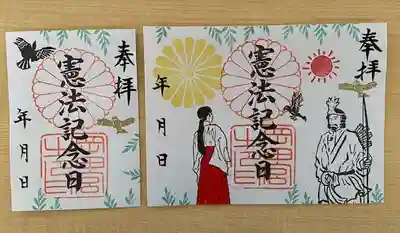 奉拝
憲法記念日
年月日
奉拝
憲法記念日
年月日